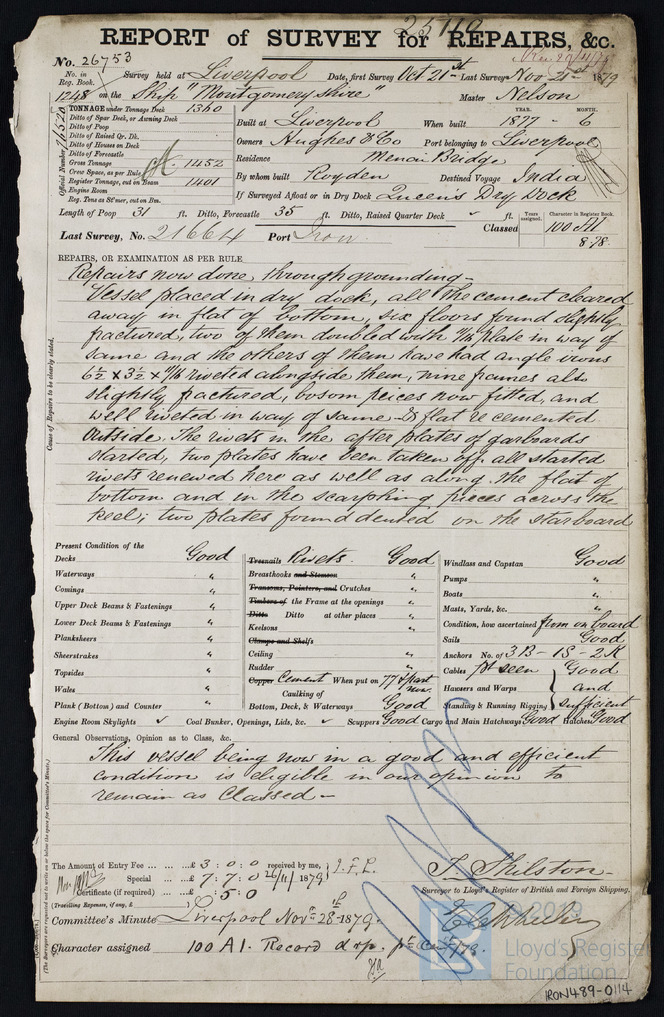 25110
REPORT of SURVEY for REPAIRS, &c.
No. 26753
No. in Reg. Book. Survey held at Liverpool Date, first Survey Oct 21st Last Survey Nov 21st 1879
1248 on the Ship "Montgomeryshire" Master Nelson
Official Number 76520
TONNAGE under Tonnage Deck 1360
Ditto of Spar Deck, or Awning Deck
Ditto of Poop
Ditto of Raised Qr. Dk.
Ditto of Houses on Deck
Ditto of Forecastle
Gross Tonnage 1452
Crew Space, as per Rule
Register Tonnage, cut on Beam 1401
Engine Room
Reg. Tons as St'mer, cut on Bm.
YEAR. MONTH.
Built at Liverpool When built 1877 - 6
Owners Hughes & Co Port belonging to Liverpool
Residence Menai Bridge
By whom built Royden Destined Voyage India
If Surveyed Afloat or in Dry Dock Queens Dry Dock
Length of Poop 31 ft. Ditto, Forecastle 35 ft. Ditto, Raised Quarter Deck ft.
Years assigned. Character in Register Book.
Last Survey, No. 21664 Port Iron Classed 100 A1
8.78
REPAIRS, OR EXAMINATION AS PER RULE
Cause of Repairs to be clearly stated.
Repairs now done, through grounding -
Vessel placed in dry dock, all the cement cleared
away in flat of bottom, six floors found slightly
fractured, two of them doubled with plate in way of
same and the others of them have had angle irons
6½ x 3½ x riveted alongside them, nine frames also
slightly fractured, bosom peices now fitted, and
well riveted in way of same & flat re cemented
Outside. The rivets in the after plates of garboards
started, two plates have been taken off all started
rivets renewed here as well as along the flat of
bottom and in the scarphing pieces across the
keel; two plates found dented on the starboard
Present Condition of the
Decks Good
Waterways "
Comings "
Upper Deck Beams & Fastenings "
Lower Deck Beams & Fastenings "
Planksheers "
Sheerstrakes "
Topsides "
Wales "
Plank (Bottom) and Counter "
Engine Room Skylights
Treenails Rivets. Good
Breasthooks and Stemson "
Transoms, Pointers, and Crutches "
Timbers of the Frame at the openings "
Ditto Ditto at other places "
Keelsons "
Clamps and Shelfs
Ceiling "
Rudder "
Copper Cement When put on 77 & part now.
Caulking of
Bottom, Deck, & Waterways Good
Coal Bunker, Openings, Lids, &c.
Scuppers Good Cargo and Main Hatchways Good Hatches Good
Windlass and Capstan Good
Pumps "
Boats "
Masts, Yards, &c. "
Condition, how ascertained from on board
Sails Good
Anchors No. of 3B - 1S - 2K
Cables pt seen Good
Hawsers and Warps and
Standing & Running Rigging sufficient
General Observations, Opinion as to Class, &c.
This vessel being now in a good and efficient
condition is eligible in our opinion to
remain as Classed -
The Amount of Entry Fee ... ... £ 3 : 0 : 0 received by me,
Special ... £ 7 : 7 . 0 26/11/1879
Certificate (if required) ... £ : 5 : 0
(Travelling Expenses, if any, £ )
T. Skilston
Surveyor to Lloyd's Register of British and Foreign Shipping.
Committee's Minute Liverpool Novr 28th 1879.
Character assigned 100 A1. Record
(The Surveyors are requested not to write on or below the space for Committee's Minute.)
© 2019
Lloyd's Register
Foundation
IRON489-0114